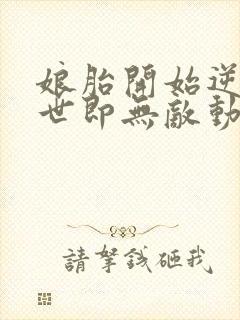 娘胎開始逆
世即無敵動
請拏錢砸我